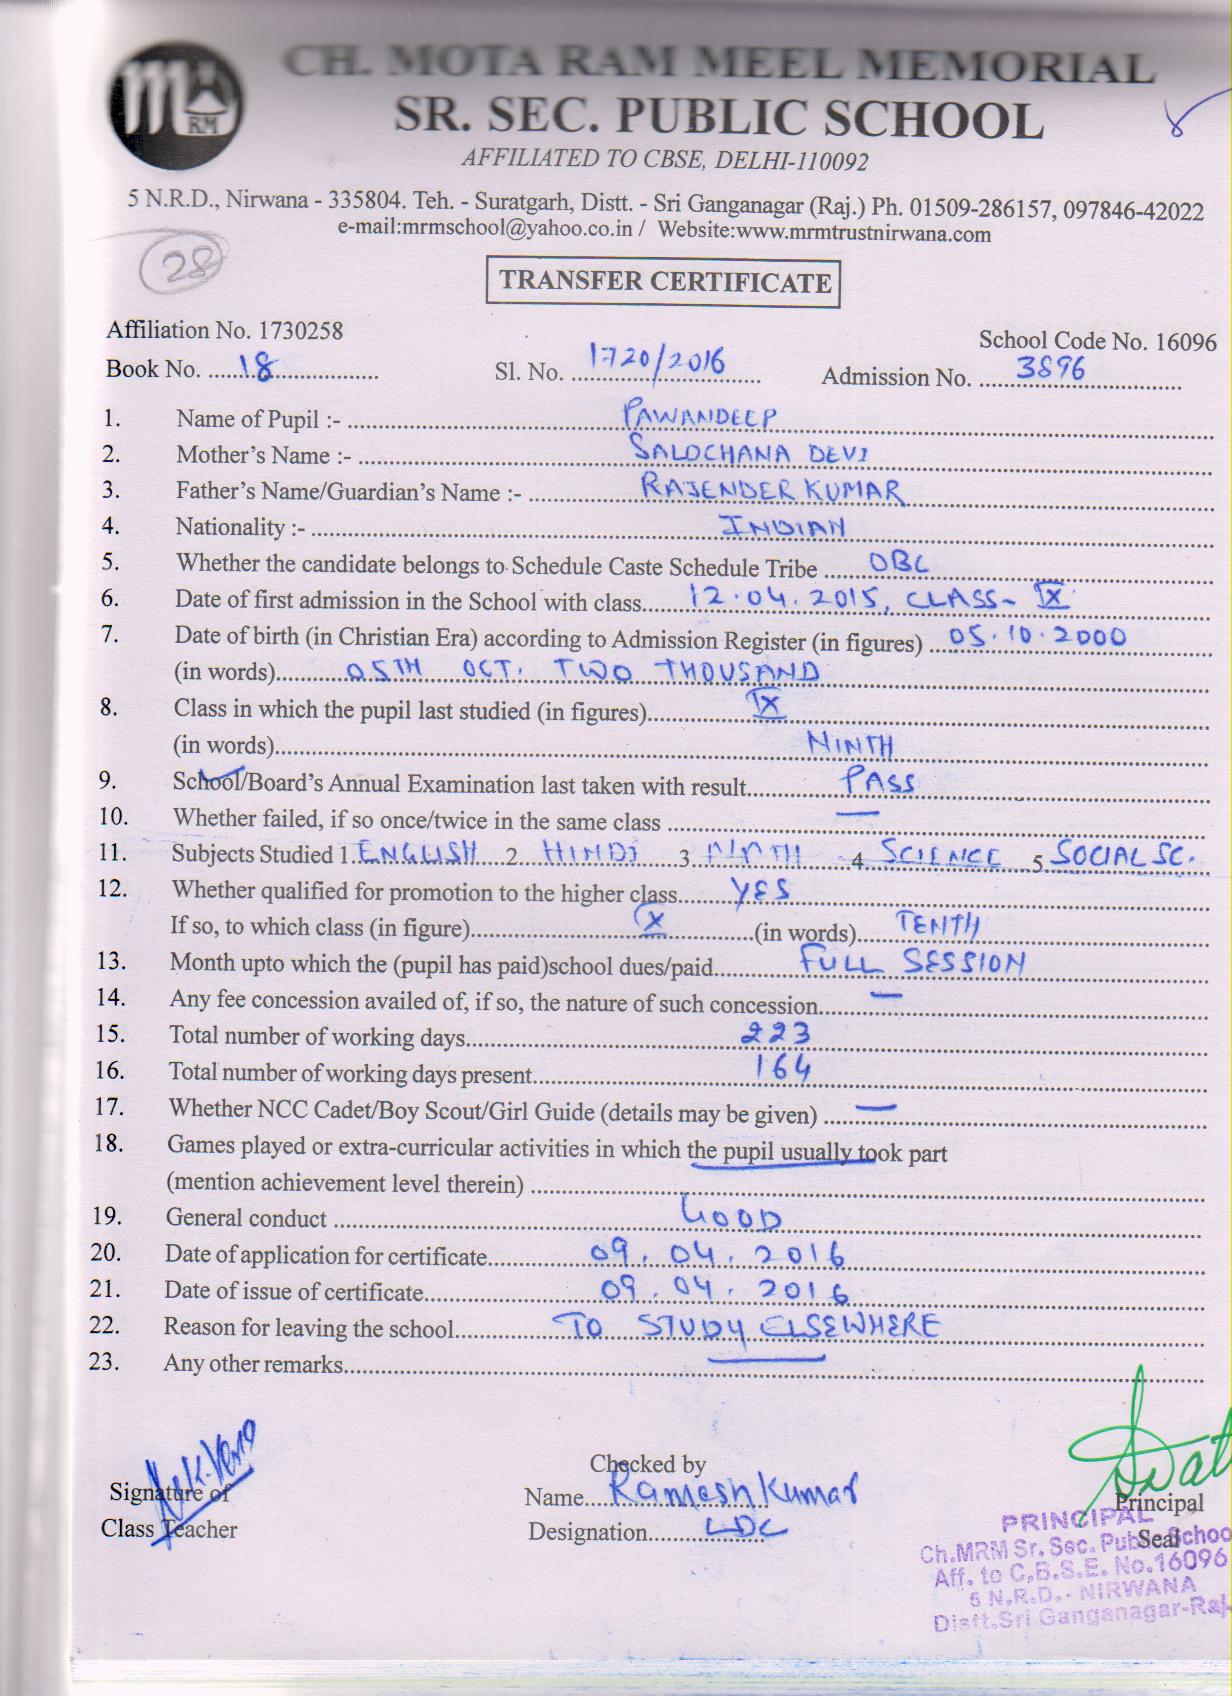 CH. MOTA RAM MEEL MEMORIAL
SR. SEC. PUBLIC SCHOOL
AFFILIATED TO CBSE, DELHI-110092
5 N.R.D., Nirwana - 335804. Teh. - Suratgarh, Distt. - Sri Ganganagar (Raj.) Ph. 01509-286157, 097846-42022
e-mail:mrmschool@yahoo.co.in / Website:www.mrmtrustnirwana.com
28
TRANSFER CERTIFICATE
Affiliation No. 1730258 School Code No. 16096
Book No. 18 Sl. No. 1720/2016 Admission No. 3896
1. Name of Pupil :- PAWANDEEP
2. Mother's Name :- SALOCHANA DEVI
3. Father's Name/Guardian's Name :- RAJENDER KUMAR
4. Nationality :- INDIAN
5. Whether the candidate belongs to Schedule Caste Schedule Tribe OBC
6. Date of first admission in the School with class 12.04.2015, CLASS- IX
7. Date of birth (in Christian Era) according to Admission Register (in figures) 05.10.2000
(in words) 05TH OCT. TWO THOUSAND
8. Class in which the pupil last studied (in figures) IX
(in words) NINTH
9. School/Board's Annual Examination last taken with result PASS
10. Whether failed, if so once/twice in the same class —
11. Subjects Studied 1. ENGLISH 2. HINDI 3. MATH 4. SCIENCE 5. SOCIAL SC.
12. Whether qualified for promotion to the higher class YES
If so, to which class (in figure) X (in words) TENTH
13. Month upto which the (pupil has paid)school dues/paid FULL SESSION
14. Any fee concession availed of, if so, the nature of such concession —
15. Total number of working days 223
16. Total number of working days present 164
17. Whether NCC Cadet/Boy Scout/Girl Guide (details may be given) —
18. Games played or extra-curricular activities in which the pupil usually took part
(mention achievement level therein)
19. General conduct GOOD
20. Date of application for certificate 09.04.2016
21. Date of issue of certificate 09.04.2016
22. Reason for leaving the school TO STUDY ELSEWHERE
23. Any other remarks —
Checked by
Signature of Name Ramesh Kumar Principal
Class Teacher Designation LDC Seal
PRINCIPAL
Ch.MRM Sr. Sec. Public School
Aff. to C.B.S.E. No.16096
5 N.R.D.- NIRWANA
Distt.Sri Ganganagar-Raj.